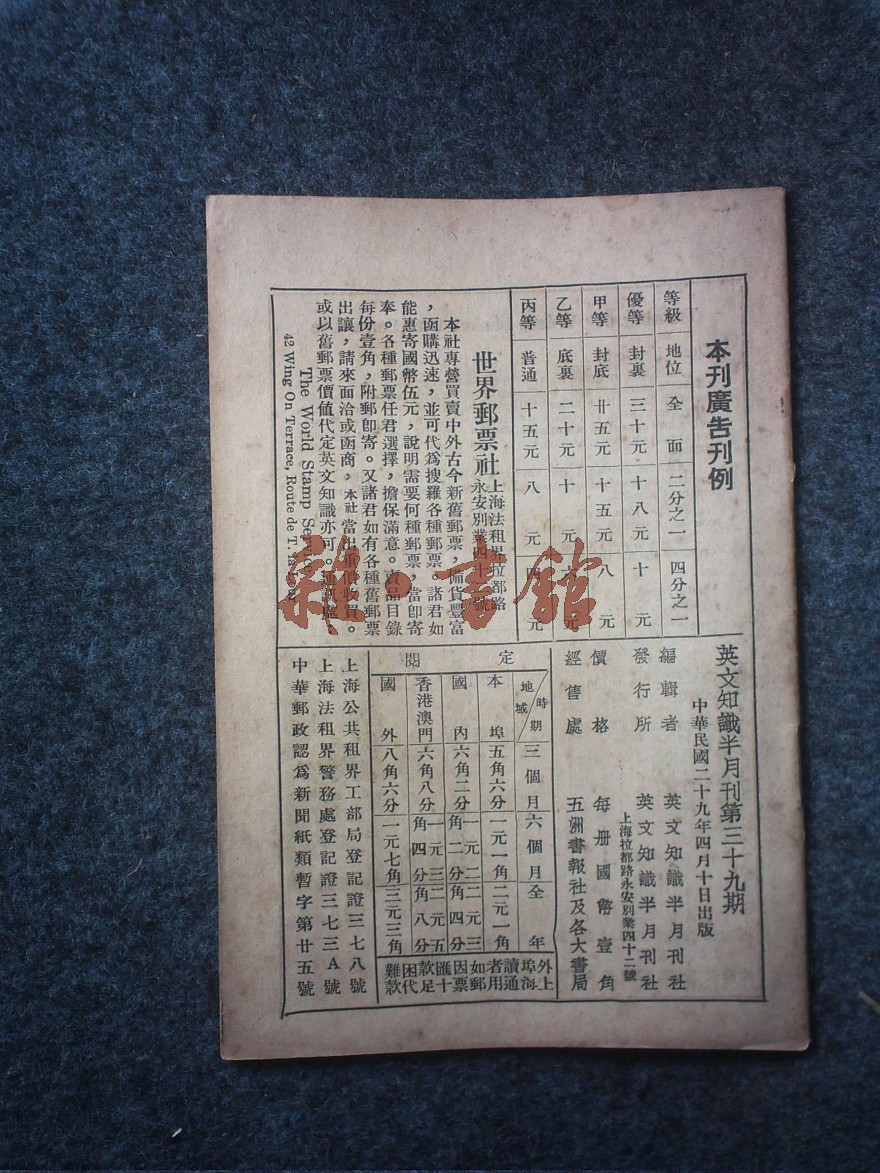 本刊廣告刊例
等級 地位 全面 二分之一 四分之一
優等 封裏 三十元 十八元 十元
甲等 封底 廿五元 十五元 八元
乙等 底裏 二十元 十元 元
丙等 普通 十五元 八元 四元
世界郵票社 上海法租界拉都路
永安別業四十二號
本社專營買賣中外古今新舊郵票，備貨豐富
，函購迅速，並可代爲搜羅各種郵票。諸君如
能惠寄國幣伍元，說明需要何種郵票，當卽寄
奉。各種郵票任君選擇，擔保滿意。賣品目錄
每份壹角，附郵卽寄。又諸君如有各種舊郵票
出讓，請來面洽或函商，本社當出重價收買。
或以舊郵票價値代定英文知識亦可。通訊處：
The World Stamp Service
42 Wing On Terrace, Route de
英文知識半月刊第三十九期
中華民國二十九年四月十日出版
編輯者 英文知識半月刊社
發行所 英文知識半月刊社
上海拉都路永安別業四十二號
價格 每册國幣壹角
經售處 五洲書報社及各大書局
定閱
時期 地域 三個月 六個月 全年
本埠 五角六分 一元一角 二元一角
國內 六角二分 一元二角二分 二元三角四分
香港澳門 六角八分 一元三角四分 二元五角八分
國外 八角六分 一元七角 三元三角
外埠讀者如因匯款困難
上海通用郵票十足代款
上海公共租界工部局登記證三七八號
上海法租界警務處登記證三七三A號
中華郵政認爲新聞紙類暫字第廿五號
雜·書館